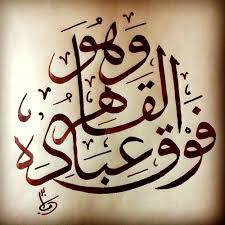 وهو
القاهر
فوق عباده